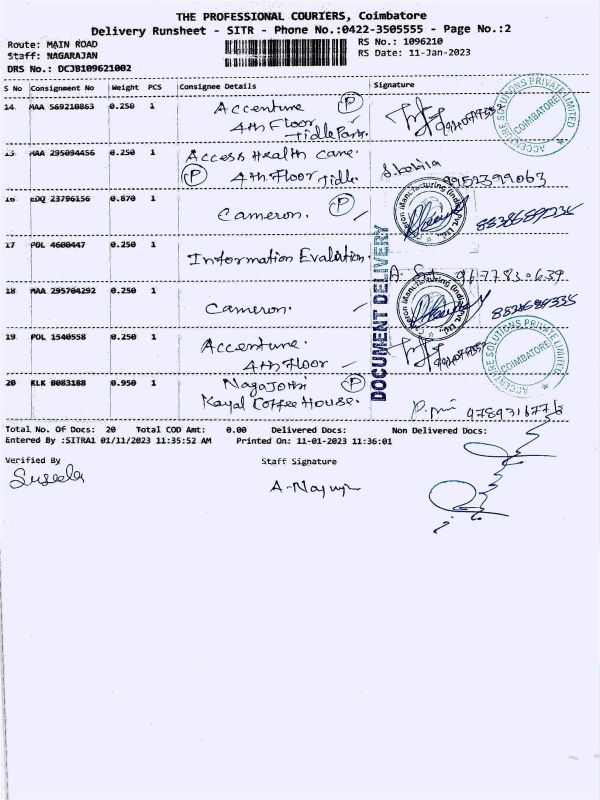 THE PROFESSIONAL COURIERS, Coimbatore
Delivery Runsheet - SITR - Phone No.:0422-3505555 - Page No.:2
Route: MAIN ROAD
RS No.: 1096210
Staff: NAGARAJAN
RS Date: 11-Jan-2023
DRS No.: DCJB109621002
S No Consignment No Weight PCS Consignee Details Signature
14 MAA 569210863 0.250 1 Accenture P
4th Floor,
Tidle Park.
ACCENTURE SOLUTIONS PRIVATE LIMITED
COIMBATORE
15 MAA 295094456 0.250 1 Access Health Care.
P 4th Floor Tidle.
9952399063
16 EDQ 23796156 0.870 1 Cameron. P
17 POL 4600447 0.250 1 Information Evaluation.
9677830639
18 MAA 295704292 0.250 1 Cameron.
DOCUMENT DELIVERY
19 POL 1540558 0.250 1 Accenture.
4th Floor
ACCENTURE SOLUTIONS PRIVATE LIMITED
COIMBATORE
20 KLK 8083188 0.950 1 Nagajothi P
Kayal Coffee House.
9789316776
Total No. Of Docs: 20 Total COD Amt: 0.00 Delivered Docs: Non Delivered Docs:
Entered By :SITRA1 01/11/2023 11:35:52 AM Printed On: 11-01-2023 11:36:01
Verified By Staff Signature
Suseela